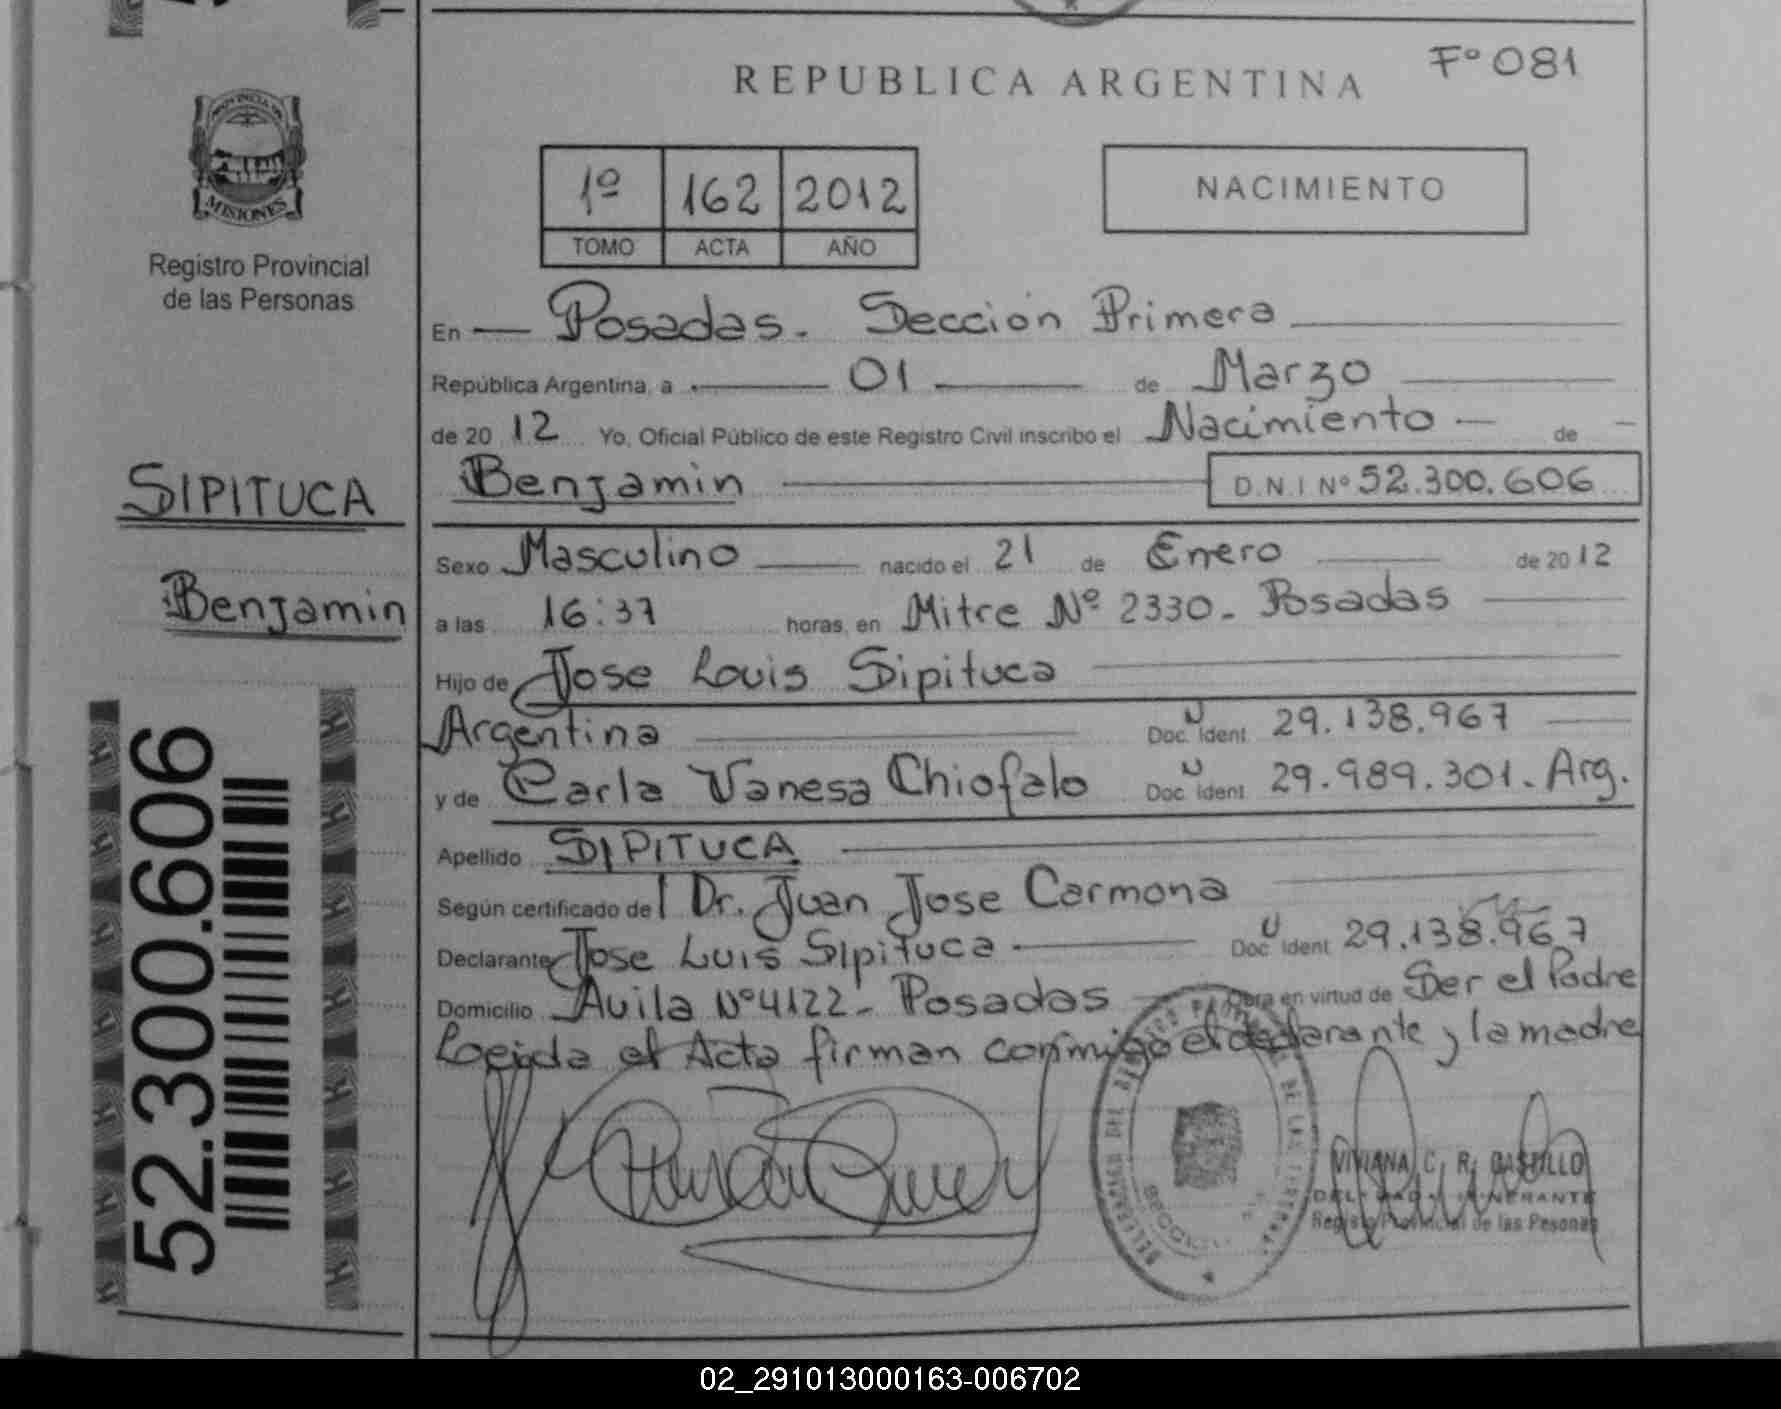 F° 081
REPUBLICA ARGENTINA
PROVINCIA DE
MISIONES
Registro Provincial
de las Personas
1º 162 2012
TOMO ACTA AÑO
NACIMIENTO
En Posadas. Sección Primera
República Argentina, a 01 de Marzo
de 2012 Yo, Oficial Público de este Registro Civil inscribo el Nacimiento de
SIPITUCA
Benjamin
Benjamin D.N.I Nº 52.300.606
Sexo Masculino nacido el 21 de Enero de 2012
a las 16:37 horas, en Mitre Nº 2330 - Posadas
Hijo de Jose Louis Sipituca
Argentina Doc. Ident. 29.138.967
y de Carla Vanesa Chiofalo Doc. Ident. 29.989.301 - Arg.
Apellido SIPITUCA
Según certificado del Dr. Juan Jose Carmona
Declarante Jose Luis Sipituca Doc. Ident. 29.138.967
Domicilio Avila Nº 4122 - Posadas Obra en virtud de Ser el Padre
Leida el Acta firman conmigo el declarante y la madre
52.300.606
VIVIANA C. R. CASTILLO
Registro Provincial de las Pesonas
02_291013000163-006702